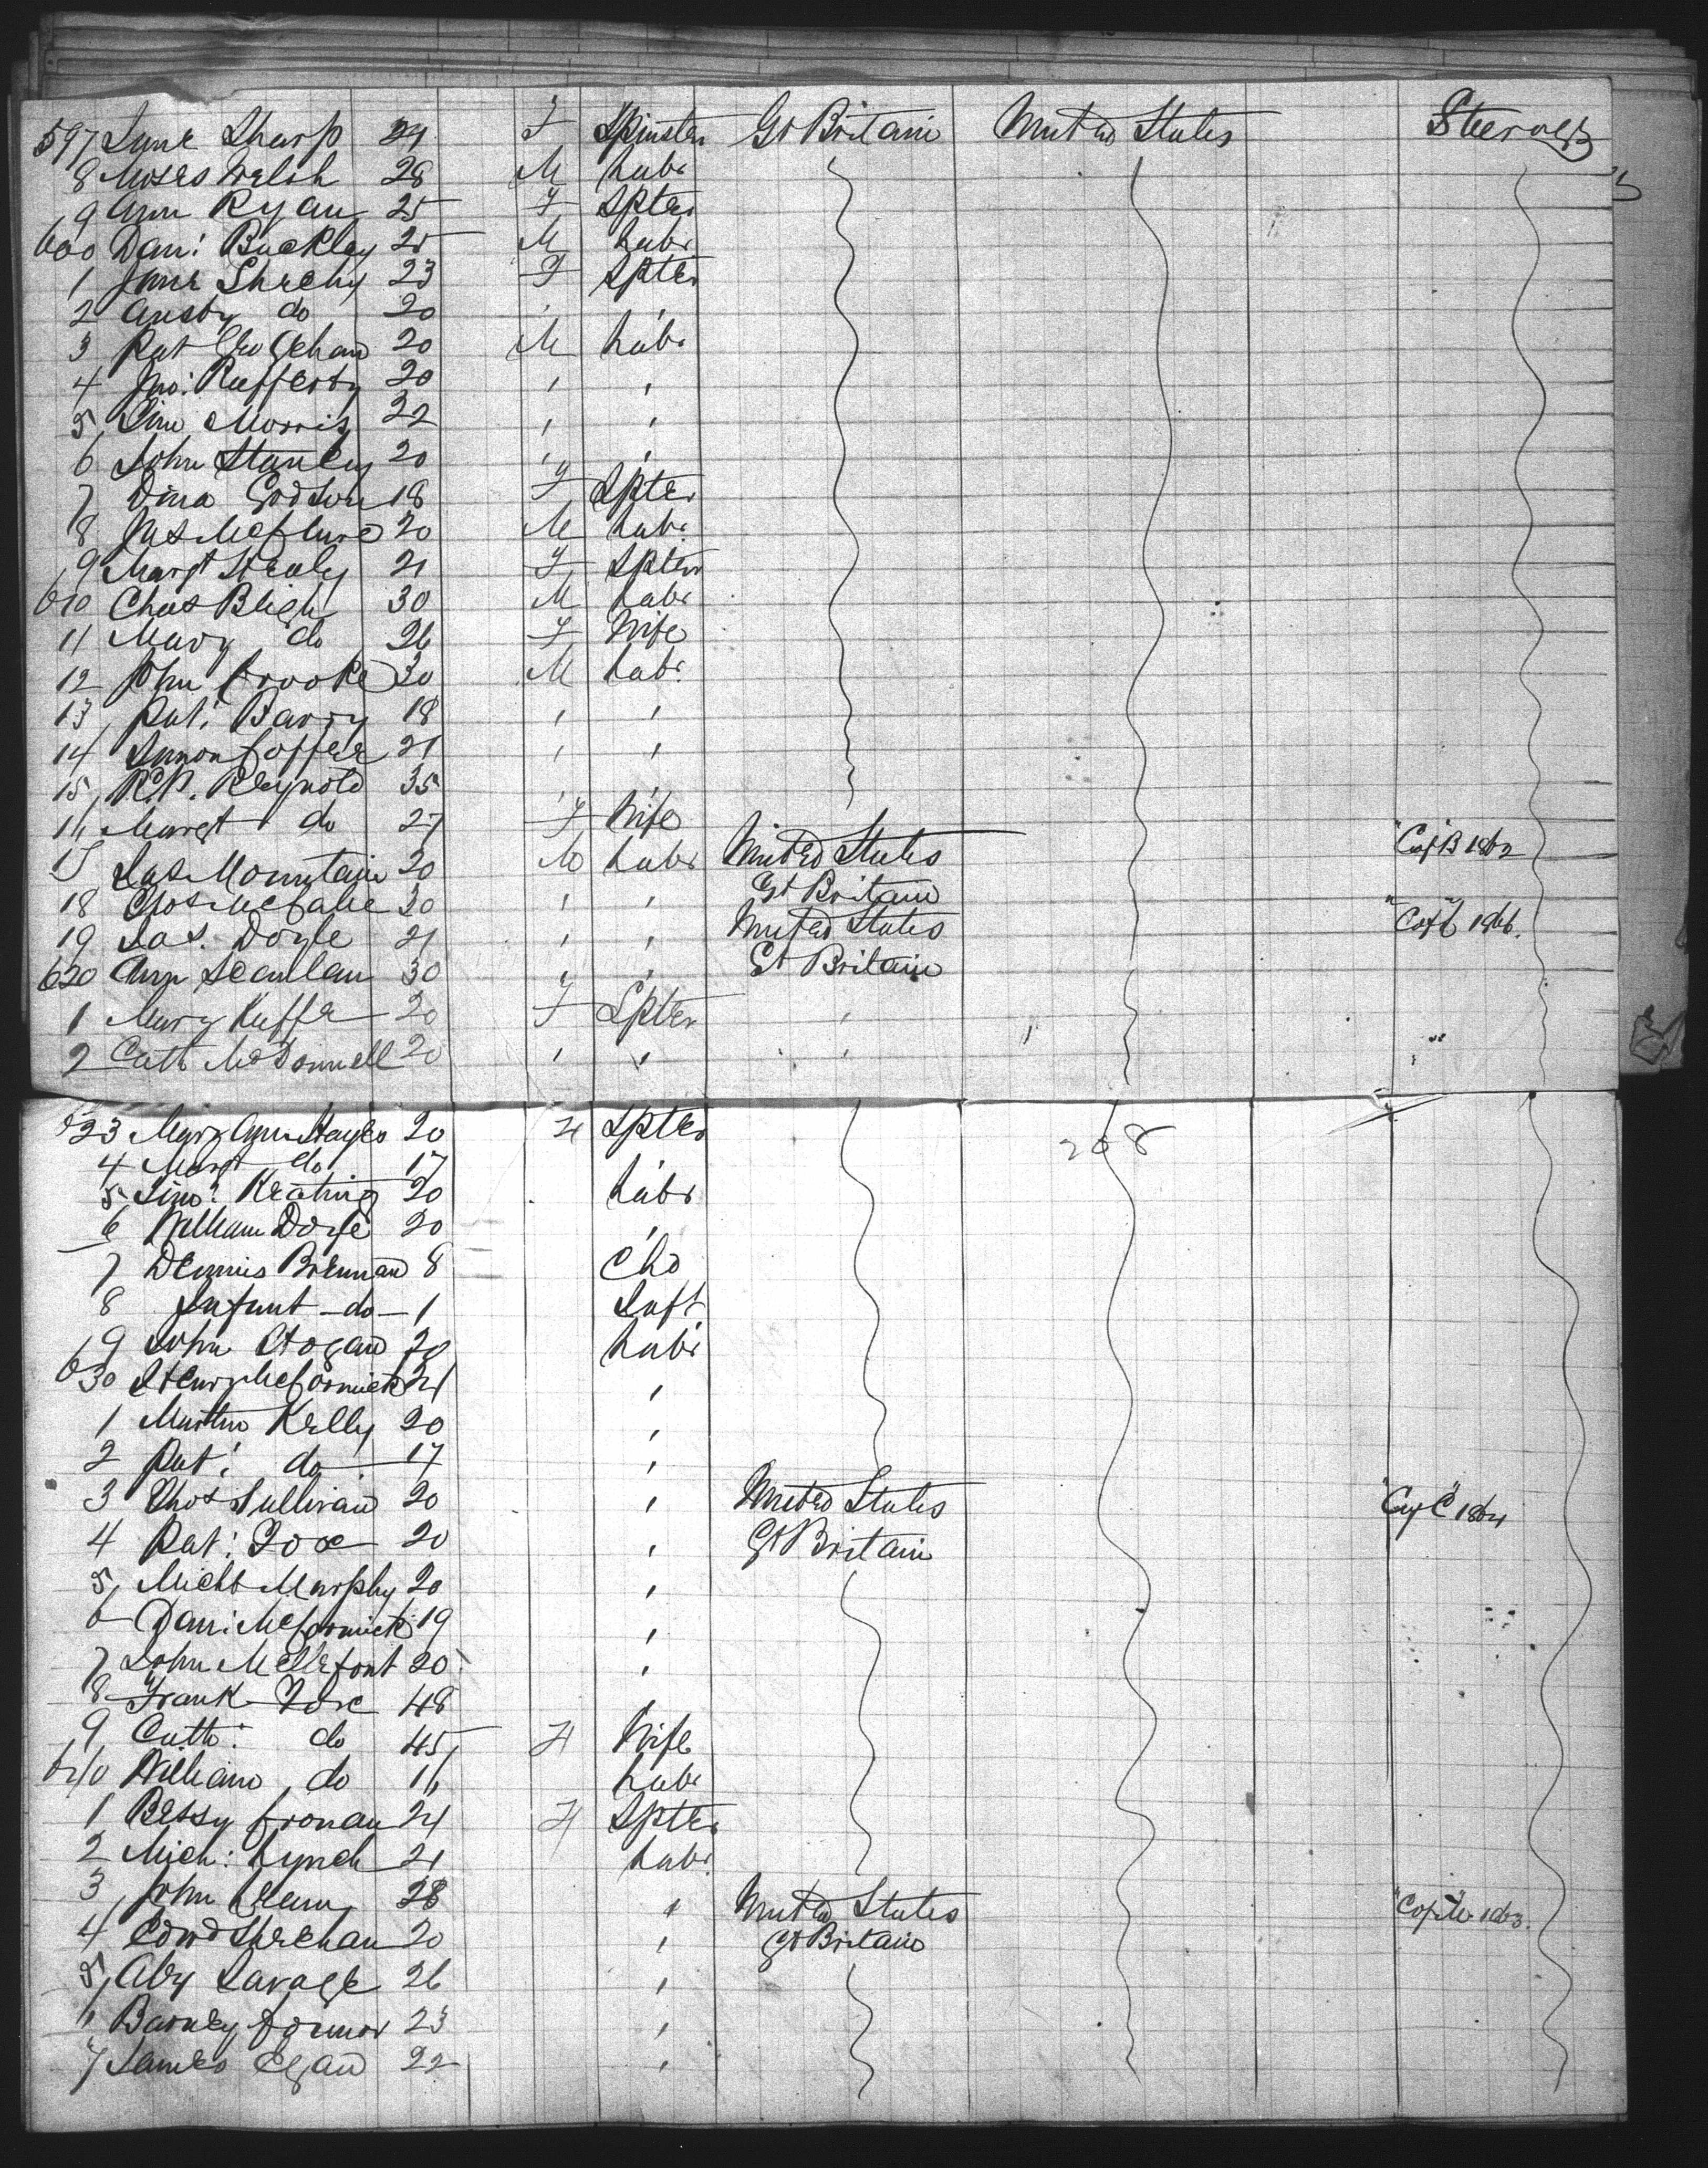 597 Jane Sharp 24 F Spinster Gt Britain United States Steerage
8 Moses Welsh 28 M Labr
9 Ann Ryan 25 F Spter
600 Danl Buckley 25 M Labr
1 Jane Sheehy 23 F Spter
2 do 20 ' '
3 Pat Geoghan 20 M Labr
4 Jno: Rafferty 20 ' '
5 Morris 22 ' '
6 John Stanley 20 ' '
7 Dina Godson 18 F Spter
8 Jas McClure 20 M Labr
9 Margt Healy 21 F Spter
610 Chas Bligh 30 M Labr
11 Mary do 26 F Wife
12 John Crooke 30 M Labr
13 Pat: Barry 18 ' '
14 21 ' '
15 R.P. Reynold 35 ' '
16 Margt do 27 F Wife
17 Jas Mountain 20 M Labr United States 1862
18 Thos McCabe 30 ' ' Gt Britain
19 Jas. Doyle 21 ' ' United States 1866.
620 Ann Scanlan 30 ' ' Gt Britain
1 Mary 20 F Spter '
2 Cath McDonnell 20 ' ' '
623 Mary Ann Hayes 20 F Spter 208
4 Margt do 17
5 Keating 20 Labr
6 William Doyle 20 '
7 Dennis Brennan 8 Chd
8 Infant -do- 1 Inft
9 John Hogan 20 Labr
630 Henry McCormick 21 '
1 Martin Kelly 20 '
2 Pat: do 17 '
3 Thos Sullivan 20 ' United States "C" 1864
4 Pat: Fox 20 ' Gt Britain
5 Michl Murphy 20 '
6 Danl McCormick 19 '
7 John Mellefont 20 '
8 Frank Fox 48 '
9 Cath: do 45 F Wife
640 William do 16 Labr
1 Bessy Cronan 24 F Spter
2 Mich: Lynch 21 Labr
3 John 28 ' United States 1863.
4 Edwd Sheehan 20 ' Gt Britain
5 Savage 26 '
6 Barney 23 '
7 James Egan 22 '